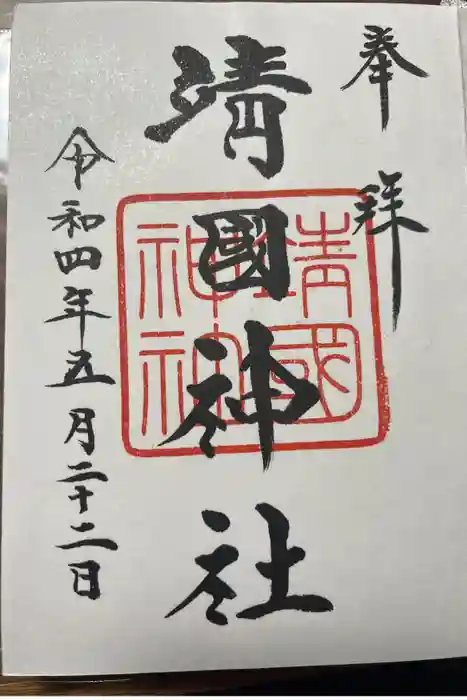 奉拝
靖國神社
靖國神社
令和四年五月二十二日